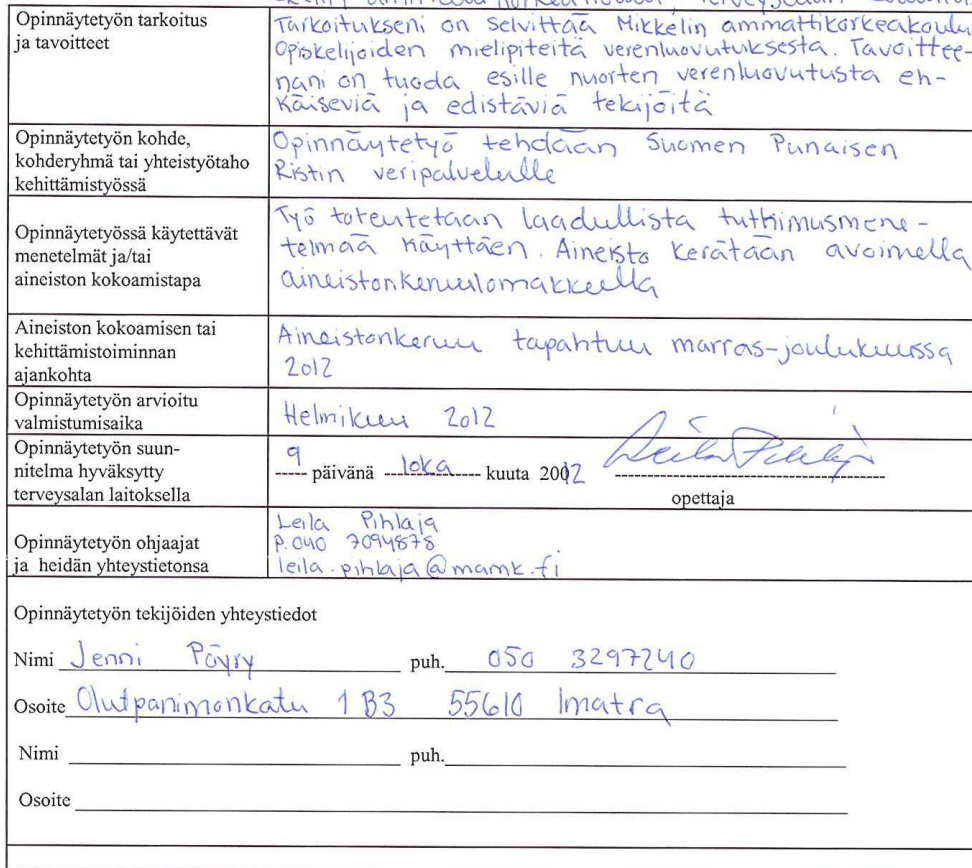 Opinnäytetyön tarkoitus
ja tavoitteet
Tarkoitukseni on selvittää Mikkelin ammattikorkeakoulu
Opiskelijoiden mielipiteitä verenluovutuksesta. Tavoittee-
nani on tuoda esille nuorten verenluovutusta eh-
käiseviä ja edistäviä tekijöitä
Opinnäytetyön kohde,
kohderyhmä tai yhteistyötaho
kehittämistyössä
Opinnäytetyö tehdään Suomen Punaisen
Ristin veripalvelulle
Opinnäytetyössä käytettävät
menetelmät ja/tai
aineiston kokoamistapa
Työ toteutetaan laadullista tutkimusmene-
telmää käyttäen. Aineisto kerätään avoimella
aineistonkeruulomakkeella
Aineiston kokoamisen tai
kehittämistoiminnan
ajankohta
Aineistonkeruu tapahtuu marras-joulukuussa
2012
Opinnäytetyön arvioitu
valmistumisaika
Helmikuu 2012
Opinnäytetyön suun-
nitelma hyväksytty
terveysalan laitoksella
9 päivänä loka kuuta 2012
opettaja
Opinnäytetyön ohjaajat
ja heidän yhteystietonsa
Leila Pihlaja
p. 040 7094878
leila.pihlaja@mamk.fi
Opinnäytetyön tekijöiden yhteystiedot
Nimi Jenni Pöyry puh. 050 3297240
Osoite Olutpanimonkatu 1 B3 55610 Imatra
Nimi puh.
Osoite